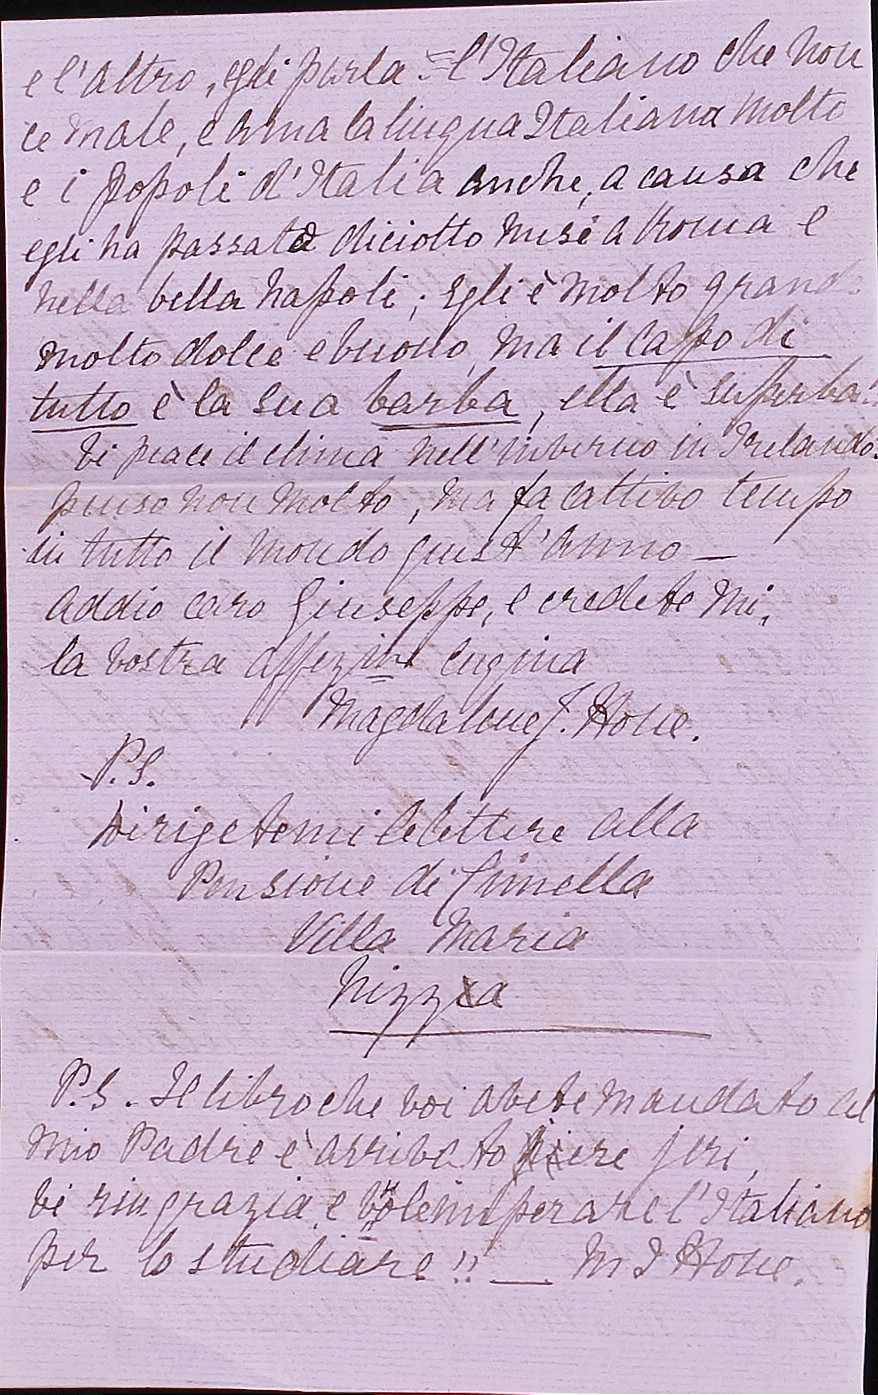 e l'altro, egli parla l'Italiano che non
ce male, e ama la lingua Italiana molto
e i popoli d'Italia anche, a causa che
egli ha passato diciotto mesi a Roma e
nella bella Napoli; Egli è molto grande
molto dolce e buono, ma il capo di
tutto è la sua barba, ella è superba!
Vi piace il clima nell'inverno in Irelando?
penso non molto, ma fa cattivo tempo
in tutto il mondo quest'anno —
Addio caro Giuseppe, e credete mi,
la vostra affezin cugina
Magdalene J. Hone.
P.S.
Dirigetemi le lettere alla
Pensione di Cimella
Villa Maria
Nizza
P.S. Il libro che voi avete mandato al
mio Padre è arrivato jeri,
vi ringrazia, e vole imperare l'Italiano
per lo studiare!! — M J Hone.